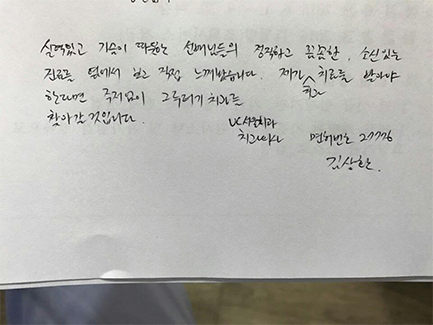 실력있고 가슴이 따뜻한 선배님들의 정직하고 꼼꼼한, 소신있는
진료를 옆에서 보고 직접 느껴왔습니다. 제가 치과 치료를 받아야
한다면 주저없이 그루터기치과를
찾아갈 것입니다.
UC서울치과
치과의사 면허번호 27776
김상환.